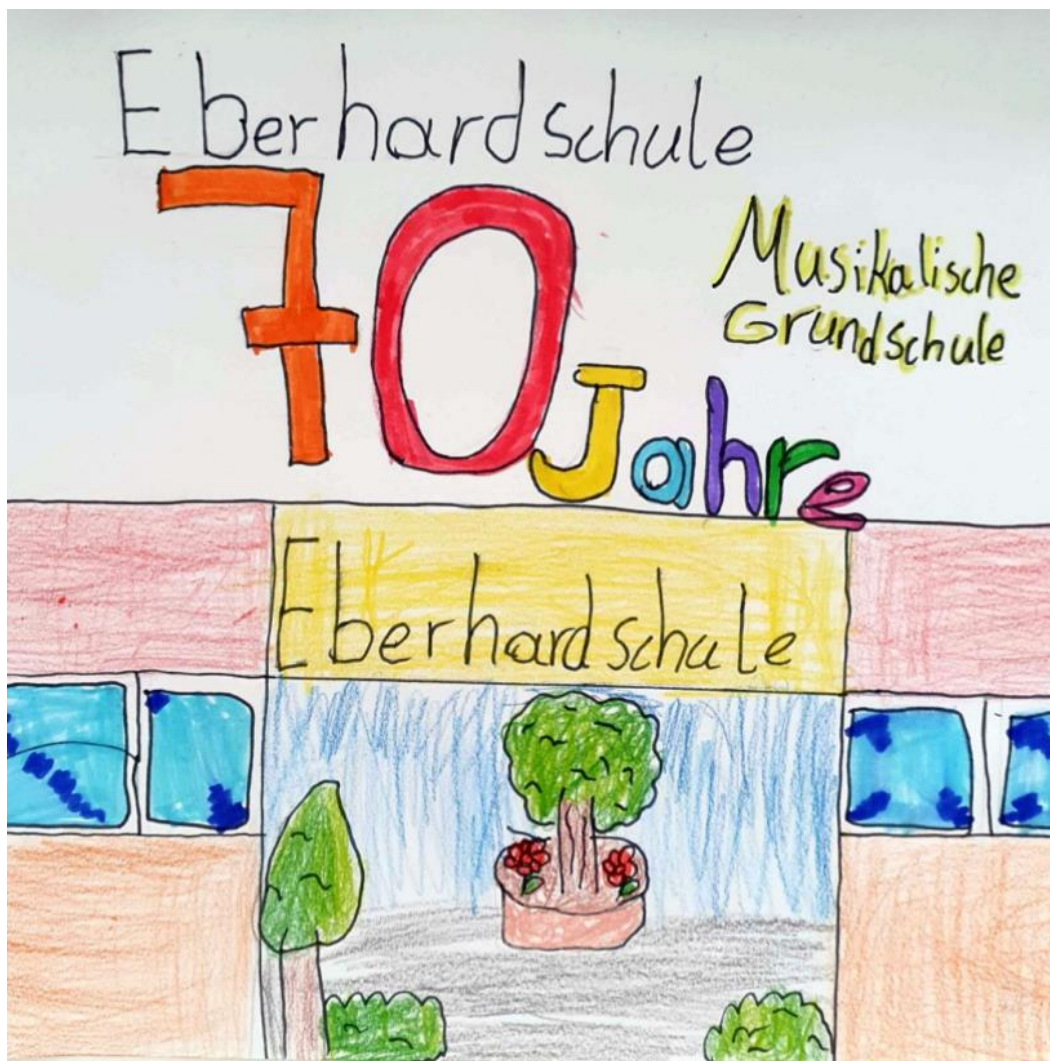 Eberhardschule
70 Jahre
Musikalische
Grundschule
Eberhardschule